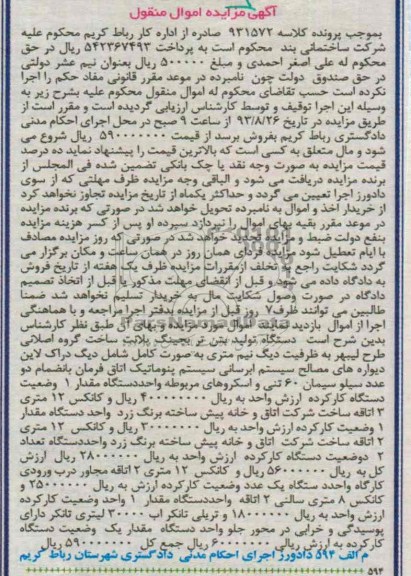 آگهی مزایده اموال منقول
بموجب پرونده کلاسه ۹۳۱۵۷۲ صادره از اداره کار رباط کریم محکوم علیه
شرکت ساختمانی بند محکوم است به پرداخت ۵۴۲۳۶۷۴۹۳ ریال در حق
محکوم له علی اصغر احمدی و مبلغ ۵۰۰۰۰۰ ریال بعنوان نیم عشر دولتی
در حق صندوق دولت چون نامبرده در موعد مقرر قانونی مفاد حکم را اجرا
نکرده است حسب تقاضای محکوم له اموال منقول محکوم علیه بشرح زیر به
وسیله این اجرا توقیف و توسط کارشناس ارزیابی گردیده است و مقرر است از
طریق مزایده در تاریخ ۹۳/۸/۲۶ از ساعت ۹ صبح در محل اجرای احکام مدنی
دادگستری رباط کریم بفروش برسد از قیمت ۵۹۰۰۰۰۰۰۰ ریال شروع می
شود و مال متعلق به کسی است که بالاترین قیمت را پیشنهاد نماید ده درصد
قیمت مزایده به صورت وجه نقد یا چک بانکی تضمین شده فی المجلس از
برنده مزایده دریافت می شود و الباقی وجه مزایده ظرف مهلتی که از سوی
دادورز اجرا تعیین می گردد و حداکثر یکماه از تاریخ مزایده تجاوز نخواهد کرد
از خریدار اخذ و اموال به نامبرده تحویل خواهد شد در صورتی که برنده مزایده
در موعد مقرر بقیه بهای اموال را نپردازد سپرده او پس از کسر هزینه مزایده
بنفع دولت ضبط و مزایده تجدید خواهد شد در صورتی که روز مزایده مصادف
با ایام تعطیل شود مزایده فردای همان روز در همان ساعت و مکان برگزار می
گردد شکایت راجع به تخلف ازمقررات مزایده ظرف یک هفته از تاریخ فروش
به دادگاه داده می شود و قبل از انقضای مهلت مذکور یا قبل از اتخاذ تصمیم
دادگاه در صورت وصول شکایت مال به خریدار تسلیم نخواهد شد ضمنا
طالبین می توانند ظرف ۷ روز قبل از مزایده بدفتر اجرا مراجعه و با هماهنگی
اجرا از اموال بازدید نمایند اموال مورد مزایده و بهای آن طبق نظر کارشناس
بدین شرح است دستگاه تولید بتن تر بچینگ پلانت ساخت گروه اصلانی
طرح لیبهر به ظرفیت دیگ نیم متری به صورت کامل شامل دیگ دراک لاین
دیواره های مصالح سیستم ابرسانی سیستم پنوماتیک اتاق فرمان بانضمام دو
عدد سیلو سیمان ۶۰ تنی و اسکروهای مربوطه واحددستگاه مقدار ۱ وضعیت
دستگاه کارکرده ارزش واحد به ریال ۴۰۰۰۰۰۰۰۰ ریال و کانکس ۱۲ متری
۳ اتاقه ساخت شرکت اتاق و خانه پیش ساخته برنگ زرد واحد دستگاه مقدار
۱ وضعیت کارکرده ارزش واحد به ریال ۳۰۰۰۰۰۰۰ ریال و کانکس ۱۲ متری
۲ اتاقه ساخت شرکت اتاق و خانه پیش ساخته برنگ زرد واحددستگاه تعداد
۲ دوضعیت دستگاه کارکرده ارزش واحد به ریال ۲۸۰۰۰۰۰۰ ریال ارزش
کل به ریال ۵۶۰۰۰۰۰۰ ریال و کانکس ۱۲ متری ۲ اتاقه مجاور درب ورودی
کارگاه واحدد ستگاه یک عدد وضعیت کارکرده ارزش به ریال ۲۵۰۰۰۰۰۰ و
کانکس ۸ متری سالنی ۲ اتاقه واحددستگاه مقدار ۱ واحد وضعیت کارکرده
ارزش واحد به ریال ۱۸۰۰۰۰۰۰ و تریلی تانکر اب ۳۰۰۰۰ لیتری تانکر دارای
پوسیدگی و خرابی در محور جلو واحد دستگاه مقدار یک وضعیت دستگاه
کارکرده به ارزش ریالی ۶۰۰۰۰۰۰۰ ریال جمع کل ۵۹۰۰۰۰۰۰۰ ریال
م الف ۵۹۴ دادورز اجرای احکام مدنی دادگستری شهرستان رباط کریم
۵۹۴